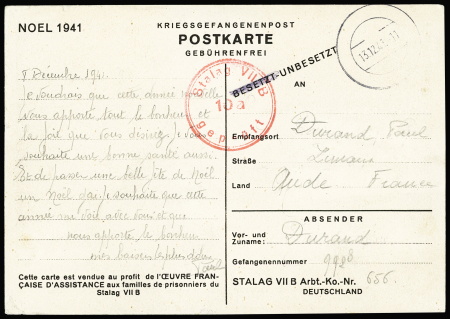 NOEL 1941
KRIEGSGEFANGENENPOST
POSTKARTE
GEBÜHRENFREI
BESETZT-UNBESETZT
Stalag VII B
10a
geprüft
13.12.41.11
AN
8 Décembre 1941.
Je voudrais que cette année nouvelle
vous apporte tout le bonheur et
la joie que vous désirez, je vous
souhaite une bonne santé aussi.
Et de passer une belle fête de Noël
un Noël que je souhaite que cette
année soit avec vous et que
vous apporte le bonheur
mes baisers les plus doux
Cette carte est vendue au profit de l'ŒUVRE FRAN-
ÇAISE D'ASSISTANCE aux familles de prisonniers du
Stalag VII B
Durand Paul
Empfangsort
Straße
Land Aude France
ABSENDER
Vor- und
Zuname: Durand
Gefangenennummer
STALAG VII B Arbt.-Ko.-Nr. 656.
DEUTSCHLAND